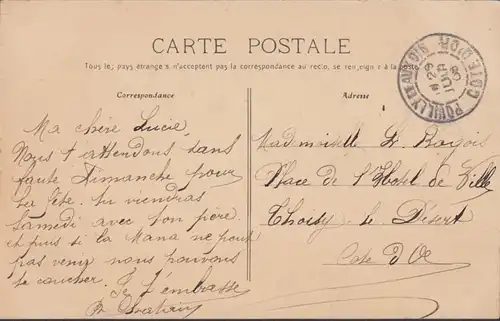 CARTE POSTALE
Tous les pays étrangers n'acceptent pas la correspondance au recto, se renseigner à la poste
Correspondance
Ma chère Lucie,
Nous t attendons sans
faute Dimanche pour
la fête. tu viendras
Samedi avec ton père
et puis si la Mana ne peut
pas venir nous pouvons
te coucher. Je t'embrasse
Adresse
Mademoiselle L.
Place de l'Hotel de Ville
Thoisy le Désert
Cote d'Or
POUILLY EN AUXOIS
COTE D'OR
29
08